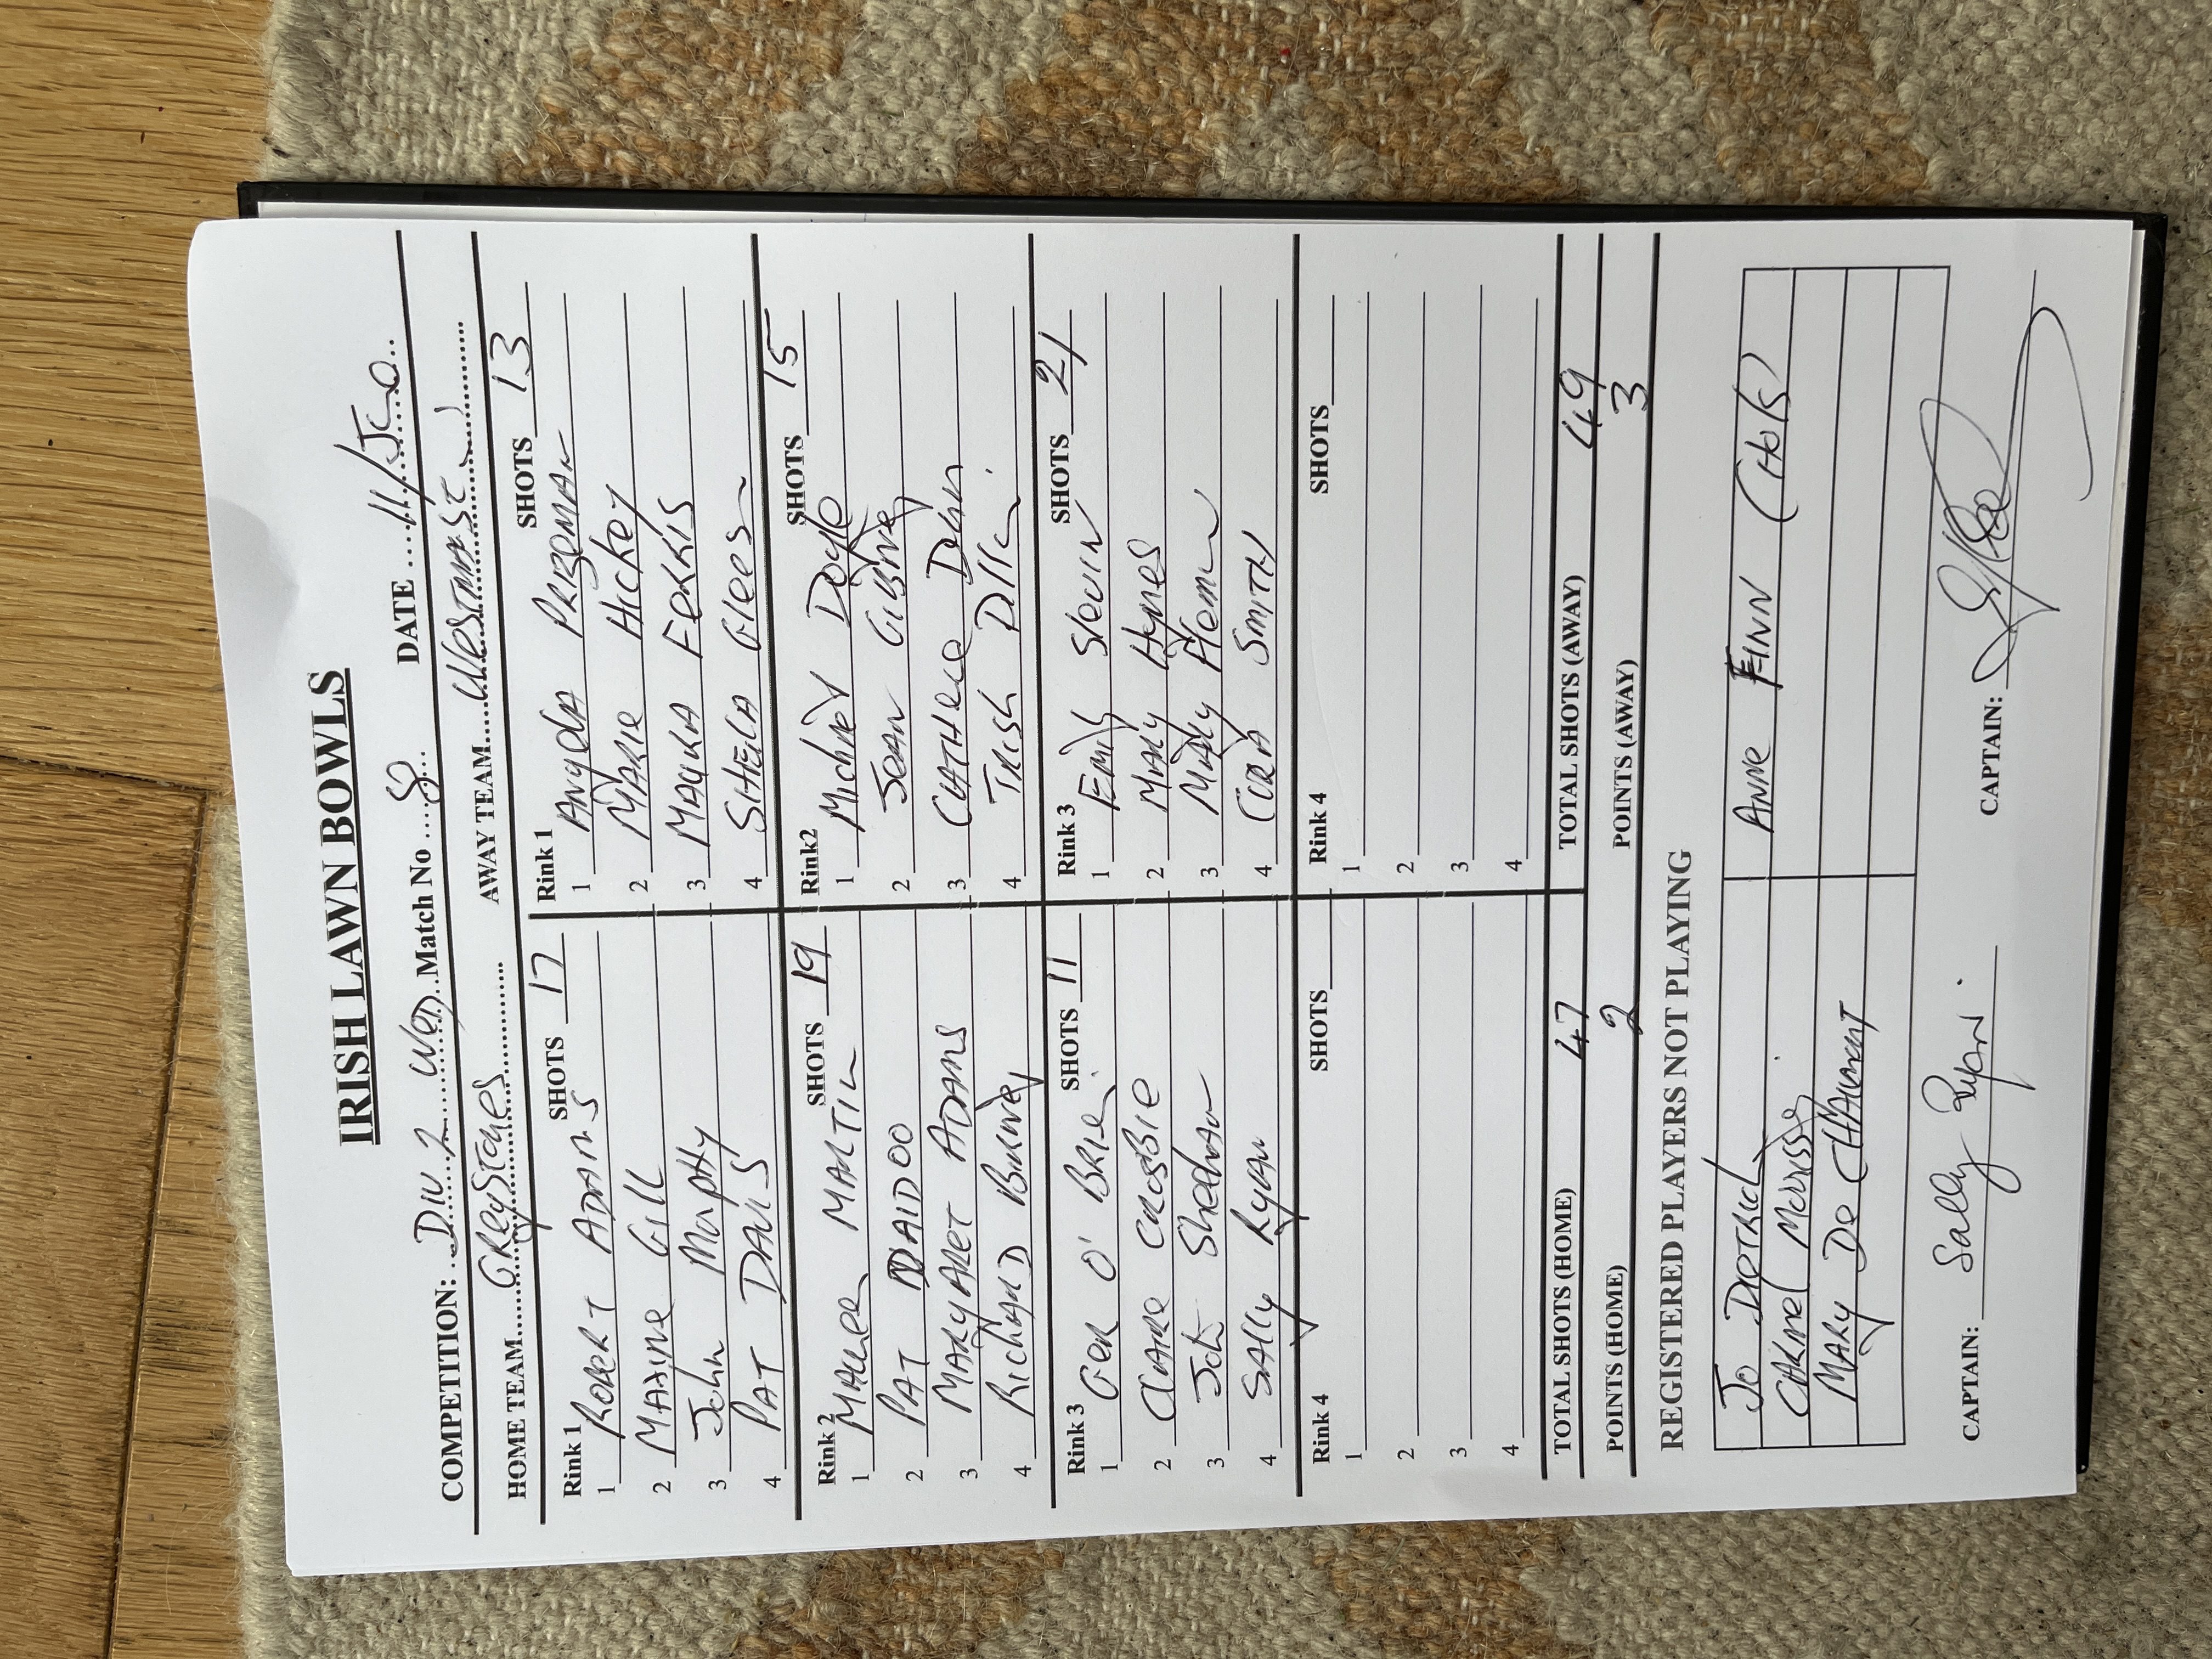 IRISH LAWN BOWLS
COMPETITION: Div 2 WED Match No DATE 11/
HOME TEAM GREYSTONES AWAY TEAM
Rink 1 SHOTS 17
1 ROBERT ADAMS
2 MAXINE GILL
3 John Murphy
4 PAT DAVIS
Rink 1 SHOTS 13
1 ANGELA PRIZEMAN
2 MARIE HICKEY
3 MAURA FERRIS
4 SHEILA
Rink 2 SHOTS 19
1 MARTIN
2 PAT NAIDOO
3 MARGARET ADAMS
4 RICHARD
Rink2 SHOTS 15
1 Michael Doyle
2 JEAN GIBNEY
3
4 TRISH
Rink 3 SHOTS 11
1 GER O'BRIEN
2 CLAIRE CROSBIE
3 Sheehan
4 SALLY Ryan
Rink 3 SHOTS 21
1 EMILY
2 MARY HYNES
3 MARY
4 SMITH
Rink 4 SHOTS
1
2
3
4
Rink 4 SHOTS
1
2
3
4
TOTAL SHOTS (HOME) 47 TOTAL SHOTS (AWAY) 49
POINTS (HOME) 2 POINTS (AWAY) 3
REGISTERED PLAYERS NOT PLAYING
Jo ANNE FINN
CARMEL
MARY DE
CAPTAIN: Sally Ryan CAPTAIN: